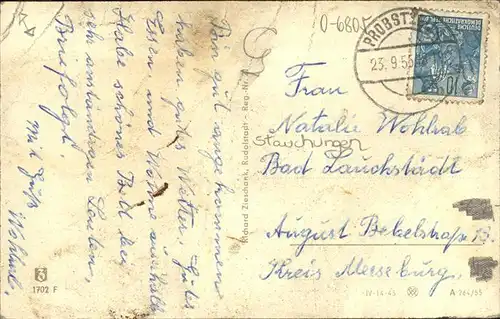 0-6801
PROBSTZ
23.9.55
DEUTSCHE
DEMOKRATISCHE
10
Bin gut angekommen
haben gutes Wetter, Gutes
Essen, und Wohne ausserhalb
Habe schönes Bett bei
sehr anständigen Leuten,
Brief folgt.
Mit Gruß
Wohlrab,
Richard Zieschank, Rudolstadt - Reg.-Nr.
Frau
Natalie Wohlrab
Stauchungen
Bad Lauchstädt
August Bebelstraße 13
Kreis Merseburg,
3
1702 F
IV-14-45
A 764/55